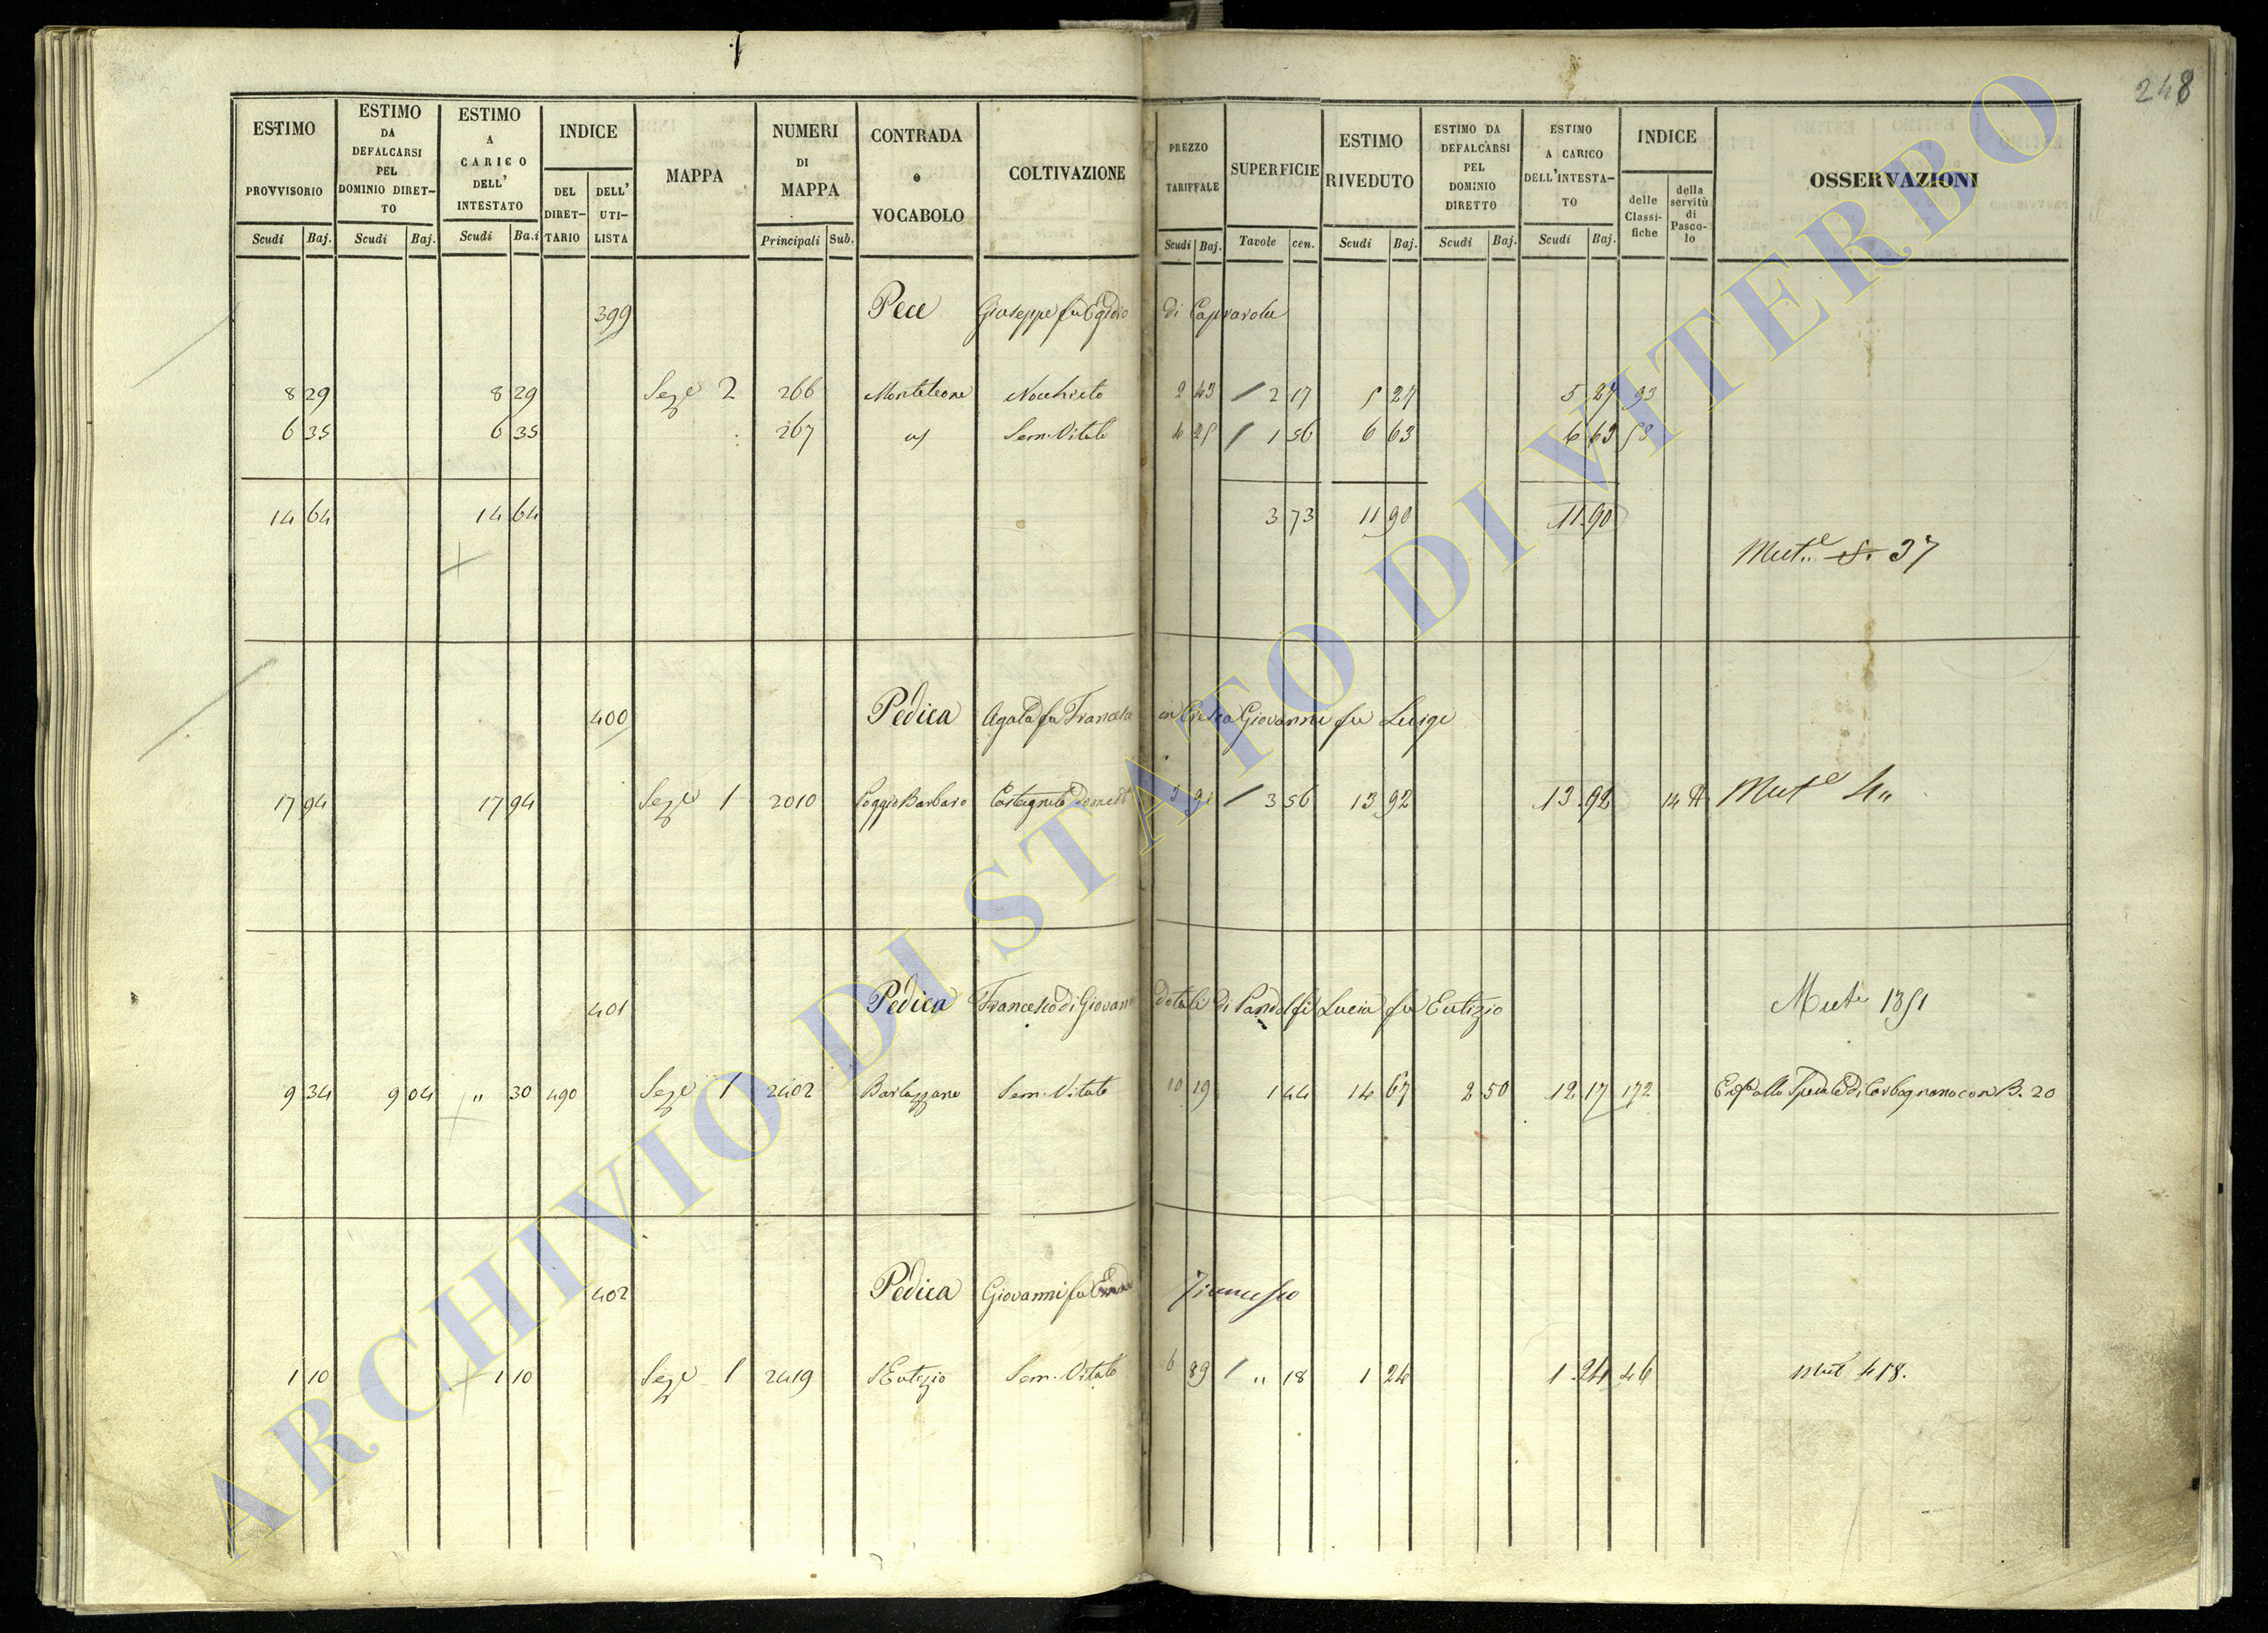 248
ESTIMO PROVVISORIO Scudi Baj.
ESTIMO DA DEFALCARSI PEL DOMINIO DIRET-TO Scudi Baj.
ESTIMO A CARICO DELL' INTESTATO Scudi Ba.i
INDICE DEL DIRET-TARIO DELL' UTI-LISTA
MAPPA
NUMERI DI MAPPA Principali Sub.
CONTRADA o VOCABOLO
COLTIVAZIONE
PREZZO TARIFFALE Scudi Baj.
SUPERFICIE Tavole cen.
ESTIMO RIVEDUTO Scudi Baj.
ESTIMO DA DEFALCARSI PEL DOMINIO DIRETTO Scudi Baj.
ESTIMO A CARICO DELL'INTESTA-TO Scudi Baj.
INDICE delle Classi-fiche della servitù di Pasco-lo
OSSERVAZIONI
399 Pece Giuseppe fu Egidio di Caprarola
8 29 8 29 Sez.e 2 266 Monteleone Nocchieto 2 43 / 2 17 5 27 5 27 93
6 35 6 35 267 Sem. Vitato 4 25 / 1 56 6 63 6 63 58
14 64 14 64 3 73 11 90 11 90
Mut.e 37
400 Pedica Agata fu Francesco in Giovanni fu Luigi
17 94 17 94 Sez.e 1 2010 Poggio Barbaro Castagneto Domest 3 91 / 3 56 13 92 13 92 14 Mut.e 4"
401 Pedica Francesco di Giovanni Dotali di Pandolfi Lucia fu Eutizio Mut.e 1351
9 34 9 04 " 30 490 Sez.e 1 2402 Barlazzano Sem. Vitato 10 19 1 44 14 67 2 50 12 17 172 Enf.a allo Spedale di Corbognano con B. 20
402 Pedica Giovanni fu Francesco
1 10 1 10 Sez.e 1 2419 S Eutizio Sem. Vitato 6 89 / " 18 1 24 1 24 46 Mut 418.
ARCHIVIO DI STATO DI VITERBO